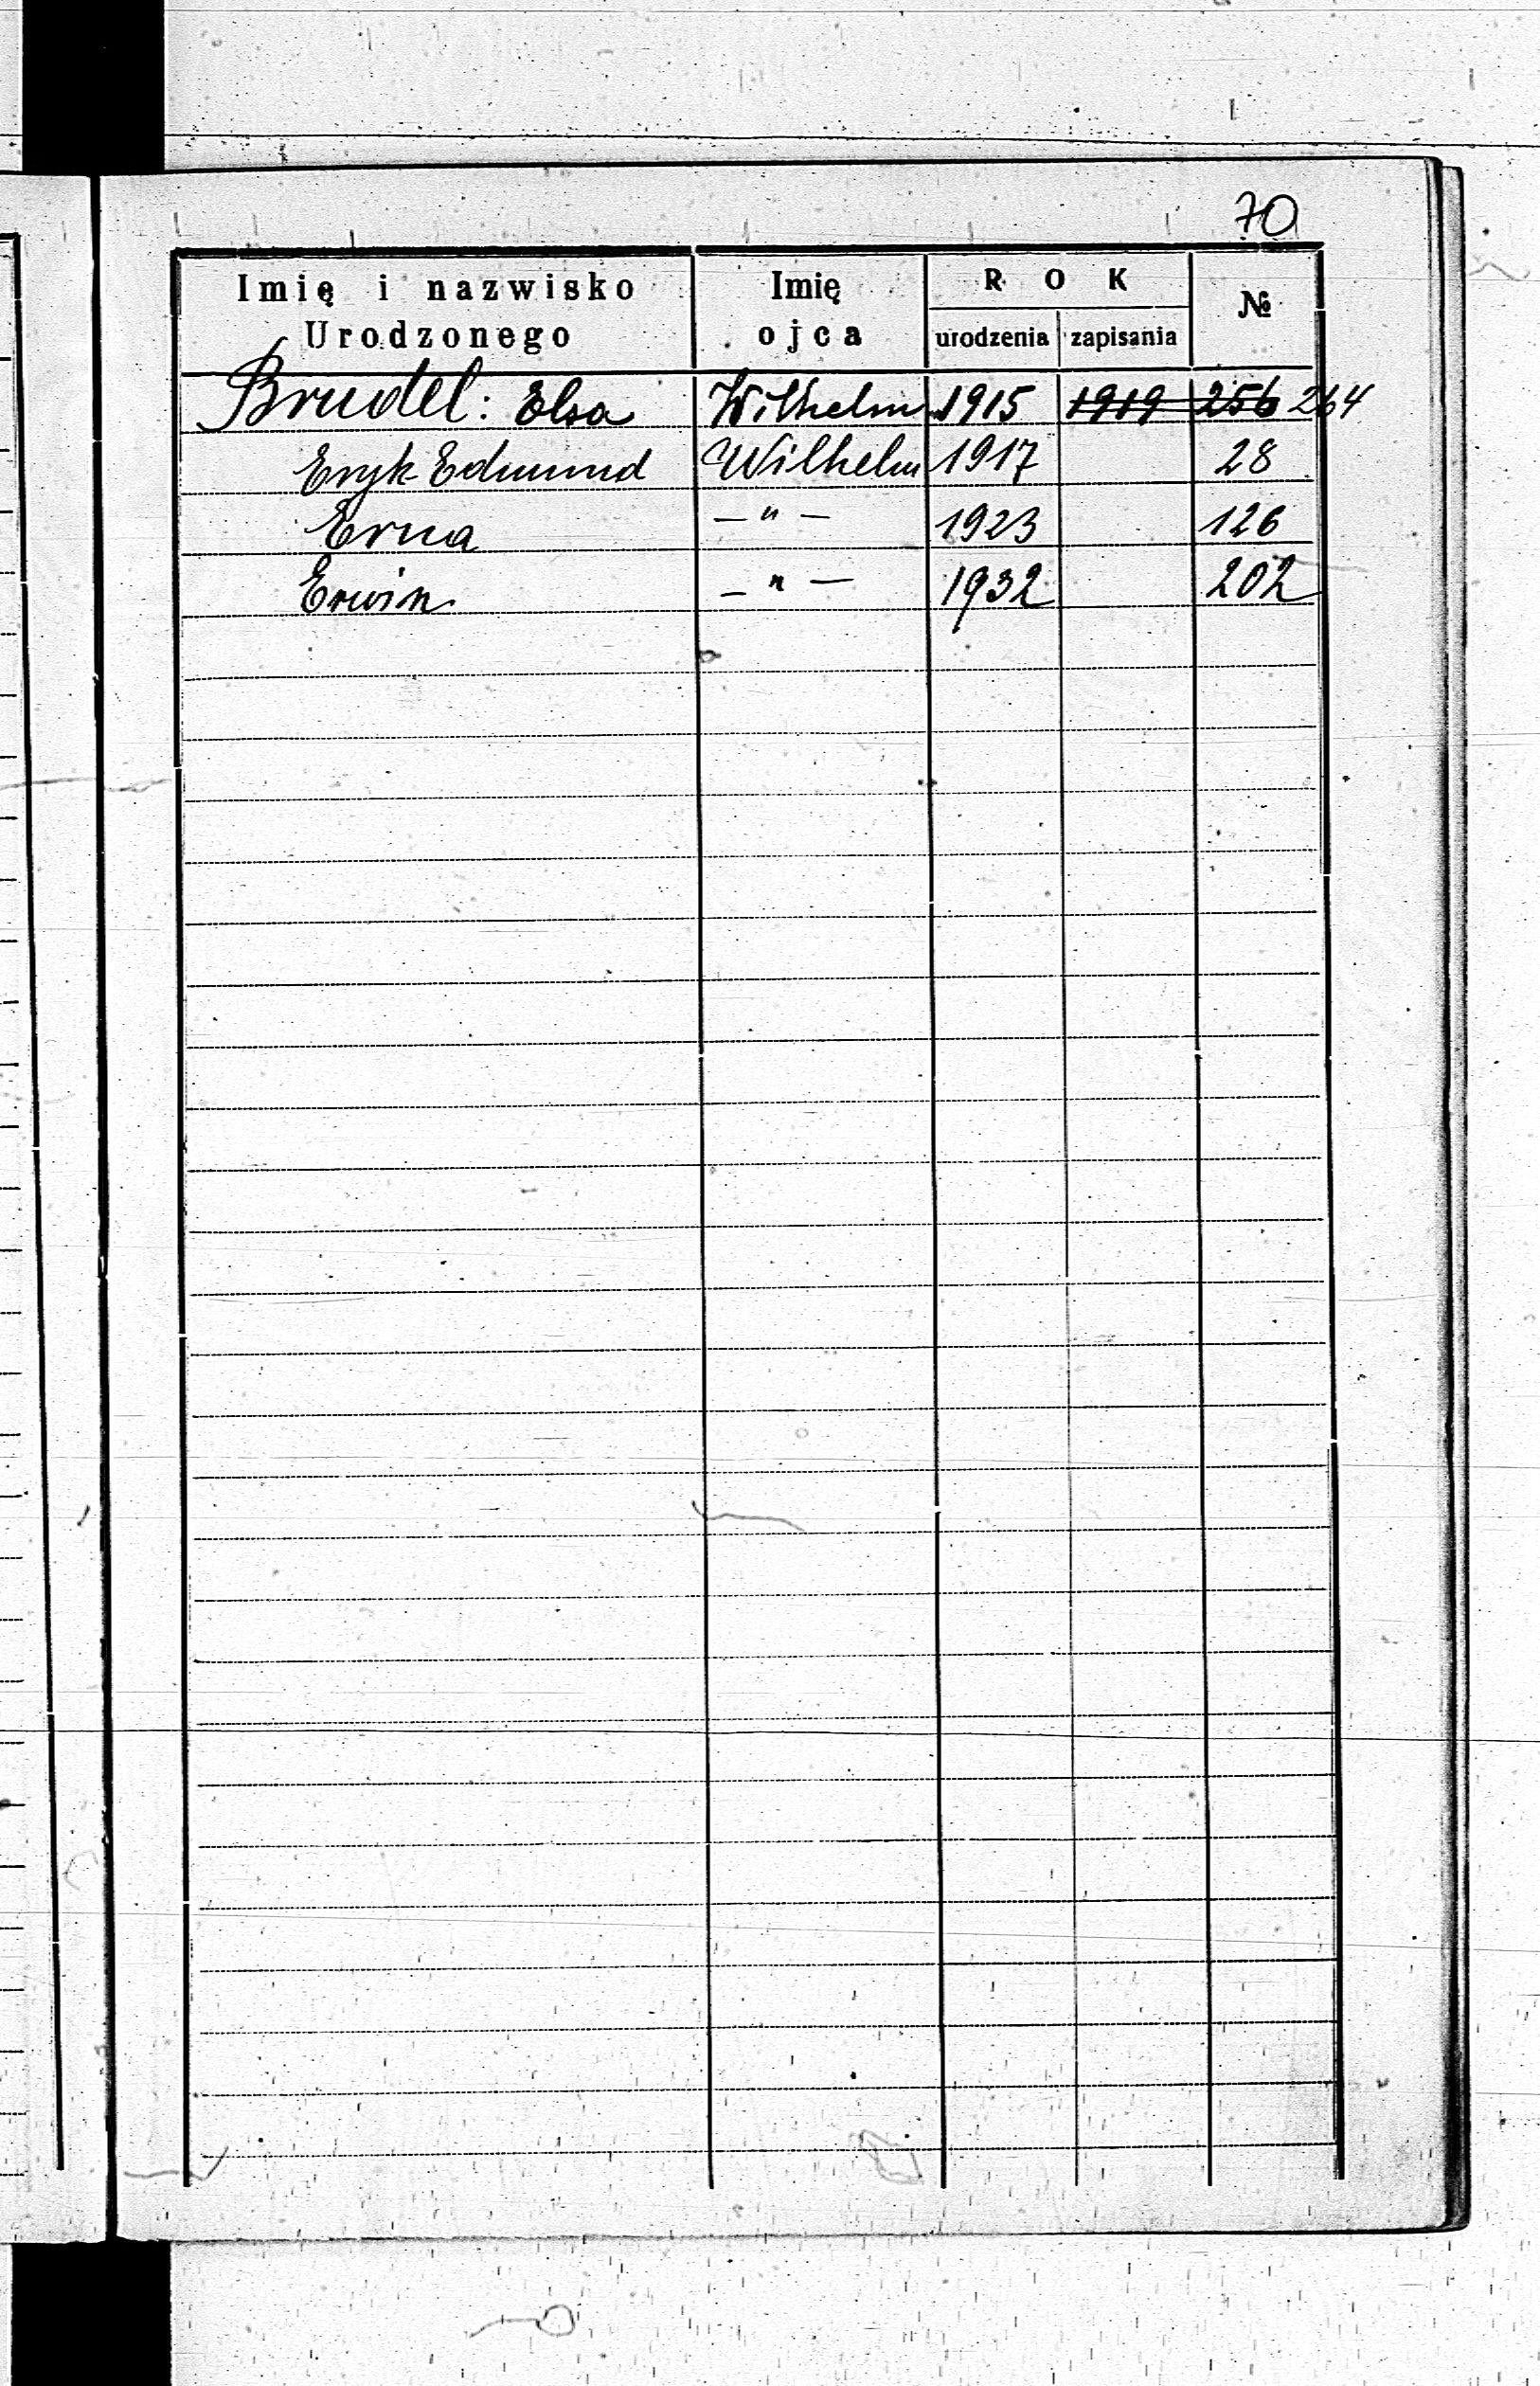 70
Imię i nazwisko Urodzonego Imię ojca ROK urodzenia zapisania №
Brudel: Elsa Wilhelm 1915 1919 256 264
Eryk Edmund Wilhelm 1917 28
Erna — " — 1923 126
Erwin — " — 1932 202